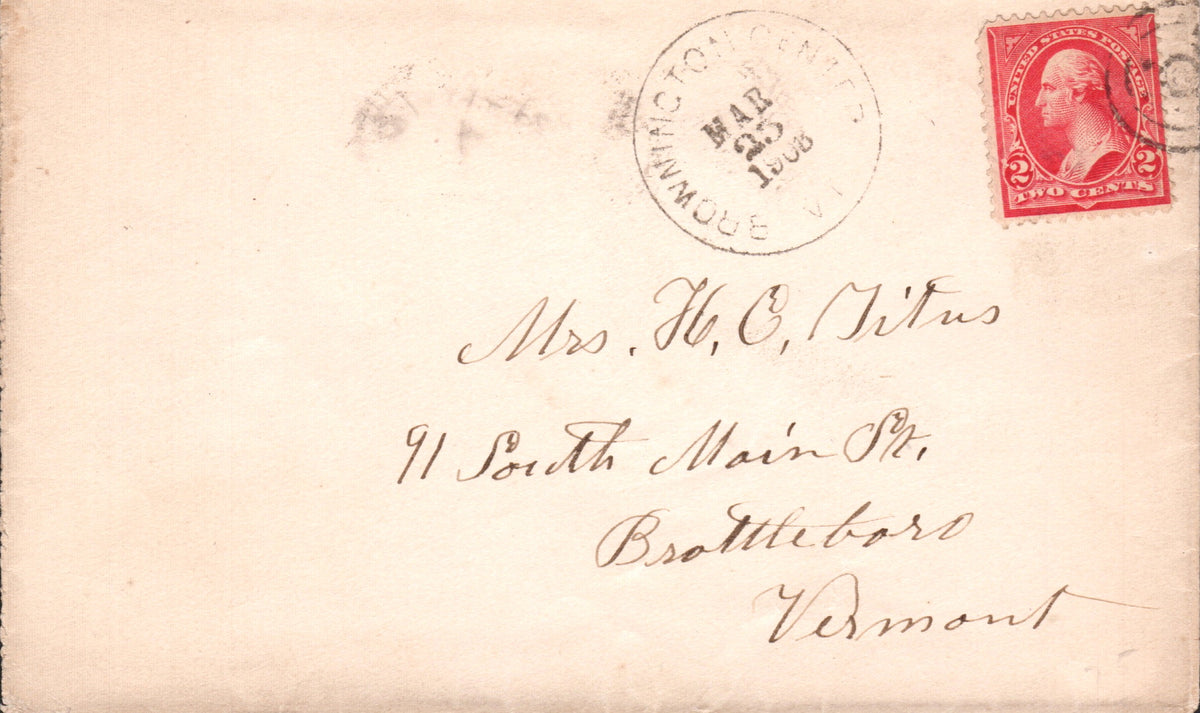 BROWNINGTON CENTER VT.
MAR
25
1903
UNITED STATES POSTAGE
2 2
TWO CENTS
Mrs. H. C. Titus
91 South Main St.
Brattleboro
Vermont